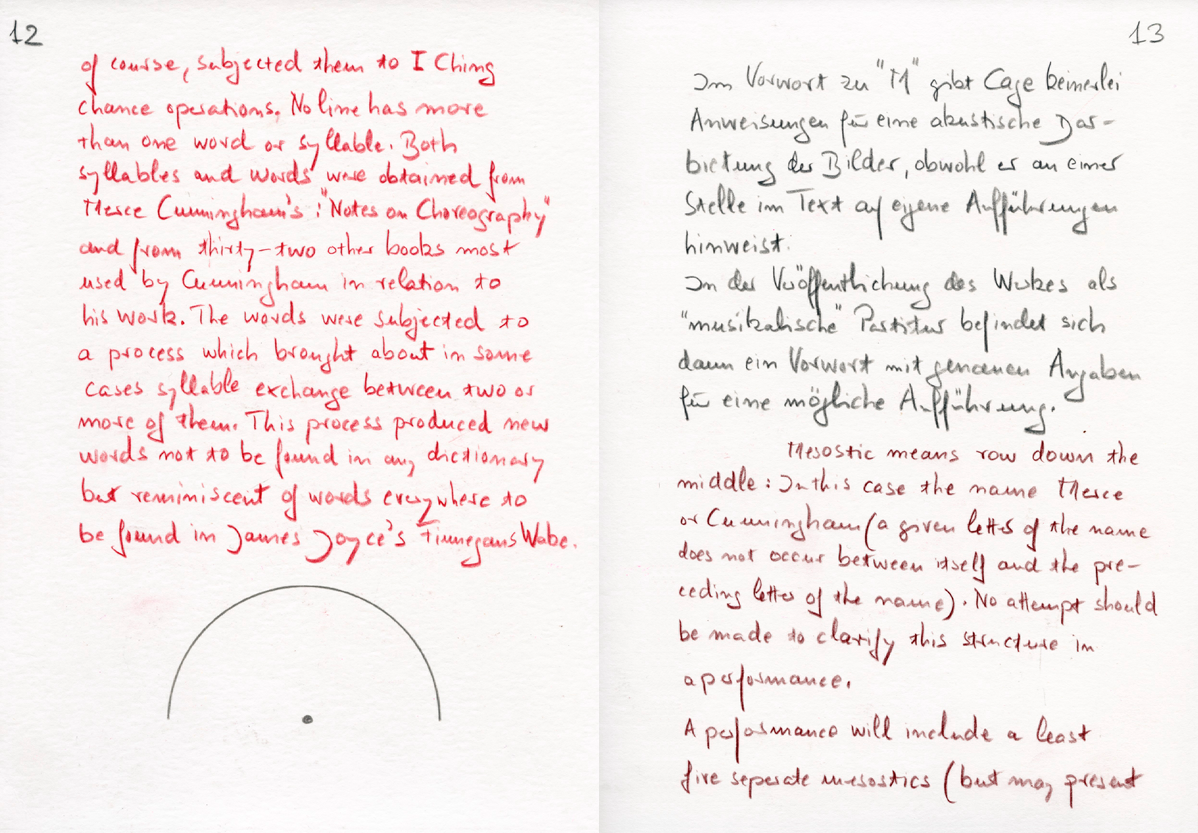 12
of course, subjected them to I Ching
chance operations. No line has more
than one word or syllable. Both
syllables and words were obtained from
Merce Cunningham's: "Notes on Choreography"
and from thirty-two other books most
used by Cunningham in relation to
his work. The words were subjected to
a process which brought about in some
cases syllable exchange between two or
more of them. This process produced new
words not to be found in any dictionary
but reminiscent of words everywhere to
be found in James Joyce's Finnegans Wake.
13
Im Vorwort zu "M" gibt Cage keinerlei
Anweisungen für eine akustische Dar-
bietung der Bilder, obwohl er an einer
Stelle im Text auf eigene Aufführungen
hinweist.
In der Veröffentlichung des Werkes als
"musikalische" Partitur befindet sich
dann ein Vorwort mit genauen Angaben
für eine mögliche Aufführung.
Mesostic means row down the
middle: In this case the name Merce
or Cunningham (a given letter of the name
does not occur between itself and the pre-
ceding letter of the name). No attempt should
be made to clarify this structure in
a performance.
A performance will include a least
five seperate mesostics (but may present